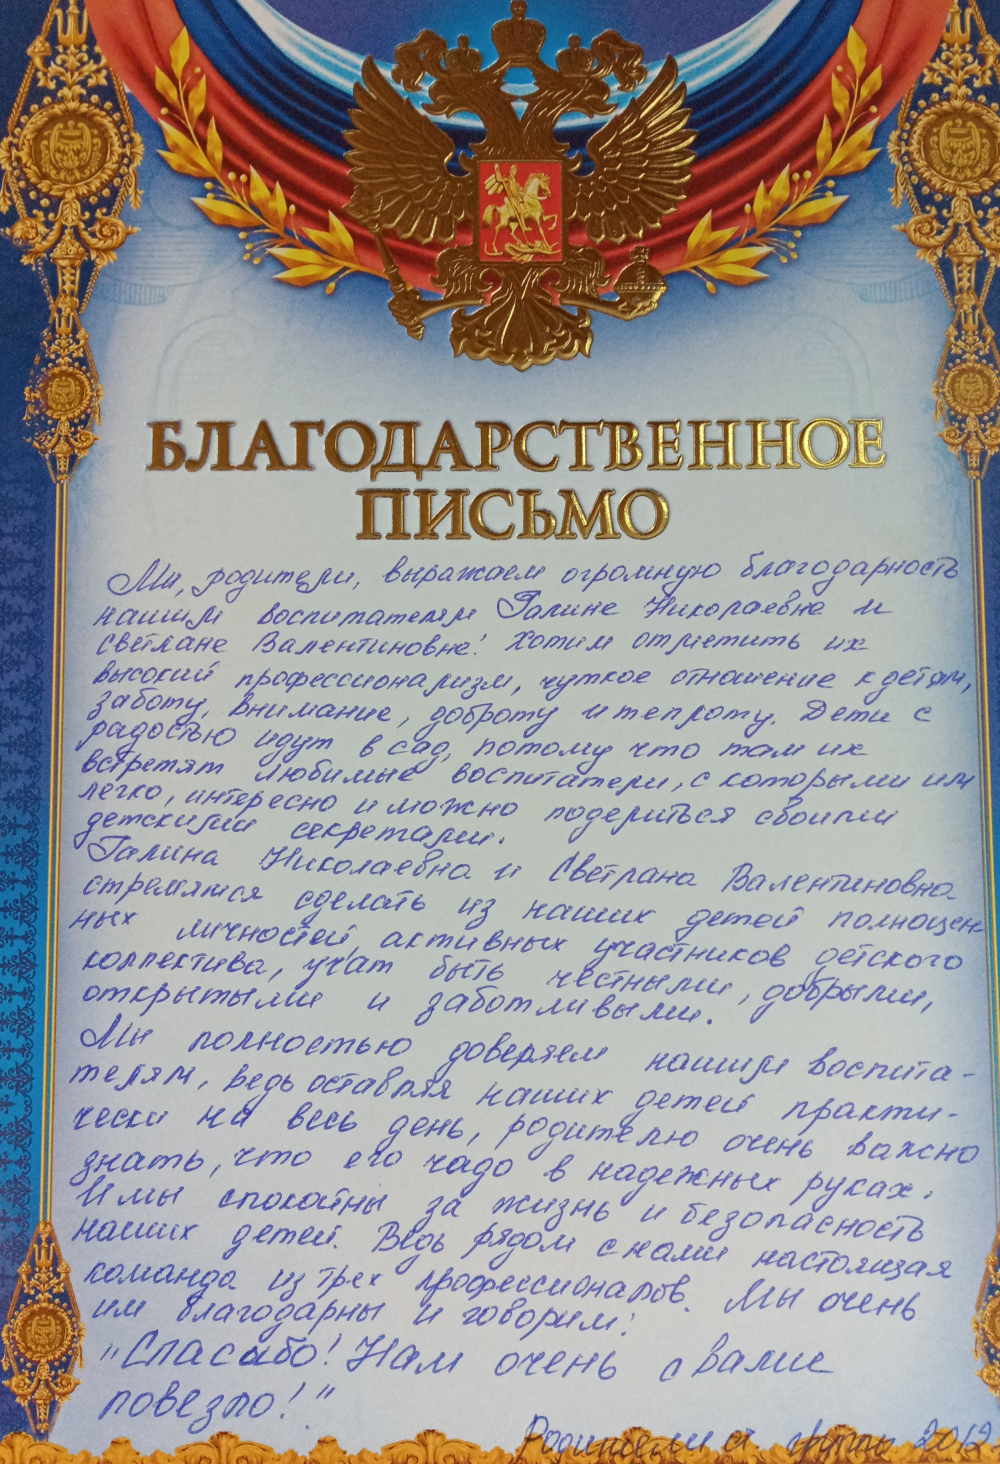 БЛАГОДАРСТВЕННОЕ
ПИСЬМО
Мы, родители, выражаем огромную благодарность
нашим воспитателям Галине Николаевне и
Светлане Валентиновне! Хотим отметить их
высокий профессионализм, чуткое отношение к детям,
заботу, внимание, доброту и теплоту. Дети с
радостью идут в сад, потому что там их
встретят любимые воспитатели, с которыми им
легко, интересно и можно поделиться своими
детскими секретами.
Галина Николаевна и Светлана Валентиновна
стремятся сделать из наших детей полноцен-
ных личностей, активных участников детского
коллектива, учат быть честными, добрыми,
открытыми и заботливыми.
Мы полностью доверяем нашим воспита-
телям, ведь оставляя наших детей практи-
чески на весь день, родителю очень важно
знать, что его чадо в надежных руках.
И мы спокойны за жизнь и безопасность
наших детей. Ведь рядом с нами настоящая
команда из трех профессионалов. Мы очень
им благодарны и говорим:
"Спасибо! Нам очень с вами
повезло!"
Родители ст. группы 2012